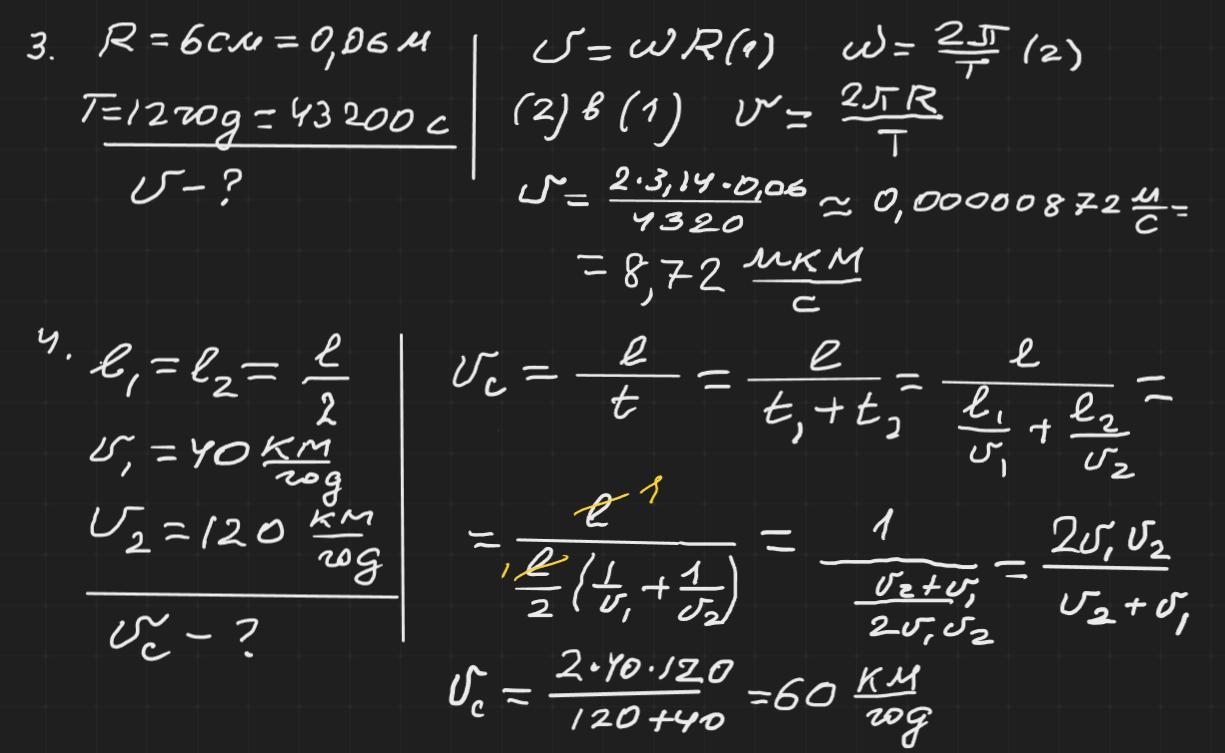 3. R = 6см = 0,06 м
T = 12год = 43200 с
υ - ?
υ = ωR (1) ω = 2π/T (2)
(2) в (1) υ = 2πR/T
υ = 2·3,14·0,06/4320 ≈ 0,00000872 м/с =
= 8,72 мкм/с
4. ℓ₁ = ℓ₂ = ℓ/2
υ₁ = 40 км/год
υ₂ = 120 км/год
υc - ?
υc = ℓ/t = ℓ/(t₁ + t₂) = ℓ/(ℓ₁/υ₁ + ℓ₂/υ₂) =
= ℓ 1/(1 ℓ/2 (1/υ₁ + 1/υ₂)) = 1/((υ₂+υ₁)/(2υ₁υ₂)) = 2υ₁υ₂/(υ₂ + υ₁)
υc = 2·40·120/(120+40) = 60 км/год